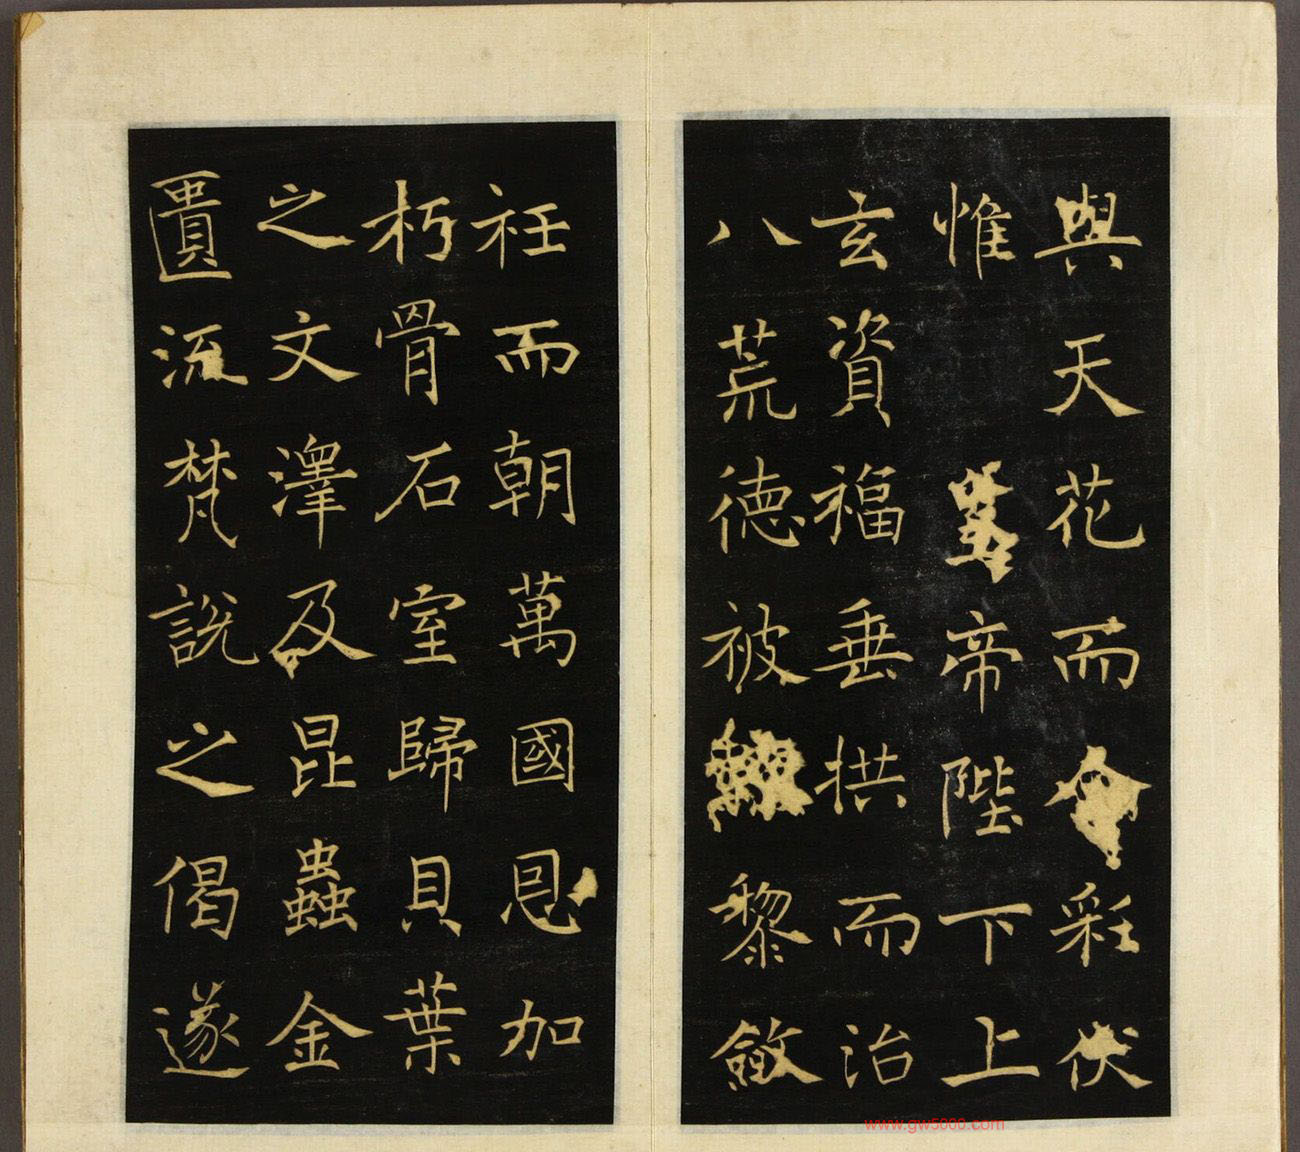 與天花而合彩伏
惟皇帝陛下上
玄資福垂拱而治
八荒德被黔黎斂
衽而朝萬國恩加
朽骨石室歸貝葉
之文澤及昆蟲金
匱流梵說之偈遂
www.gw5000.com